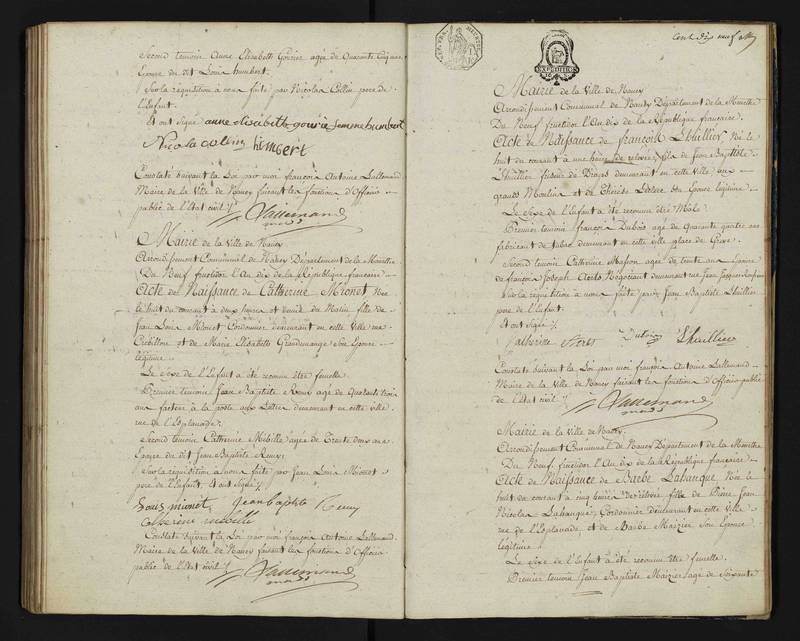 Second temoin Anne Elisabeth Gouvion agée de Quarante Cinq ans
Epouse du dit Louis humbert.
Sur la requisition à nous faite par Nicolas Collin pere de
l'Enfant.
Et ont signé anne elisabeth femme humbert
Nicola collin himbert
Constaté suivant la Loi par moi françois Antoine Lallemand
Maire de la Ville de Nancy faisant les fonctions d'Officier
public de l'Etat civil ./.
Lallemand
Mairie de la Ville de Nancy
Arrondissement Communal de Nancy Département de la Meurthe
Du Neuf fructidor l'An dix de la République française
Acte de Naissance de Catherine Mionet Née
le huit du courant à deux heures et demie du Matin fille de
Jean Louis Mionet Cordonnier demeurant en cette ville rue
Crébillon et de Marie Elisabeth Grandemange son Epouse
légitime.
Le sexe de l'Enfant a été reconnu être femelle.
Premier temoin Jean Baptiste Remy agé de Quarante trois
ans facteur à la poste aux Lettres demeurant en cette ville
rue de l'Esplanade.
Second temoin Catherine Mibille agée de Trente deux ans
Epouse du dit Jean Baptiste Remy.
Sur la requisition à nous faite par Jean Louis Mionet
pere de l'Enfant. Et ont signé ./.
Louis mionet Jean baptiste Remy
catherine mibille
Constaté suivant la Loi par moi françois Antoine Lallemand
Maire de la Ville de Nancy faisant les fonctions d'Officier
public de l'Etat civil ./.
Lallemand
Cent dix neuf
Mairie de la Ville de Nancy
Arrondissement Communal de Nancy Département de la Meurthe
Du Neuf fructidor l'An dix de la République française.
Acte de Naissance de françois Lhuillier Né le
huit du courant à une heure de relevée, fils de Jean Baptiste
Lhuillier demeurant en cette ville aux
grands Moulins et de Thérèse Leclerc son Epouse légitime.
Le sexe de l'Enfant a été reconnu être Mâle.
Premier temoin françois Dubois agé de Quarante quatre ans
fabricant de tabac demeurant en cette ville place de Grève.
Second temoin Catherine Masson agée de trente ans Epouse
de françois Joseph Négociant demeurant rue Jean Jacques Rousseau
Sur la requisition à nous faite par Jean Baptiste Lhuillier
pere de l'Enfant.
Et ont signé ./.
Catherine Dubois Lhuillier
Constaté suivant la Loi par moi françois Antoine Lallemand
Maire de la Ville de Nancy faisant les fonctions d'Officier public
de l'Etat civil ./.
Lallemand
Mairie de la Ville de Nancy.
Arrondissement Communal de Nancy Département de la Meurthe
Du Neuf fructidor l'An dix de la République française
Acte de Naissance de Barbe Lahanque Née le
huit du courant à cinq heures de relevée fille de Pierre Jean
Nicolas Lahanque, Cordonnier demeurant en cette Ville
rue de l'Esplanade et de Barbe Maizier son Epouse
légitime.
Le sexe de l'Enfant a été reconnu être femelle.
Premier temoin Jean Baptiste Maizier agé de Soixante